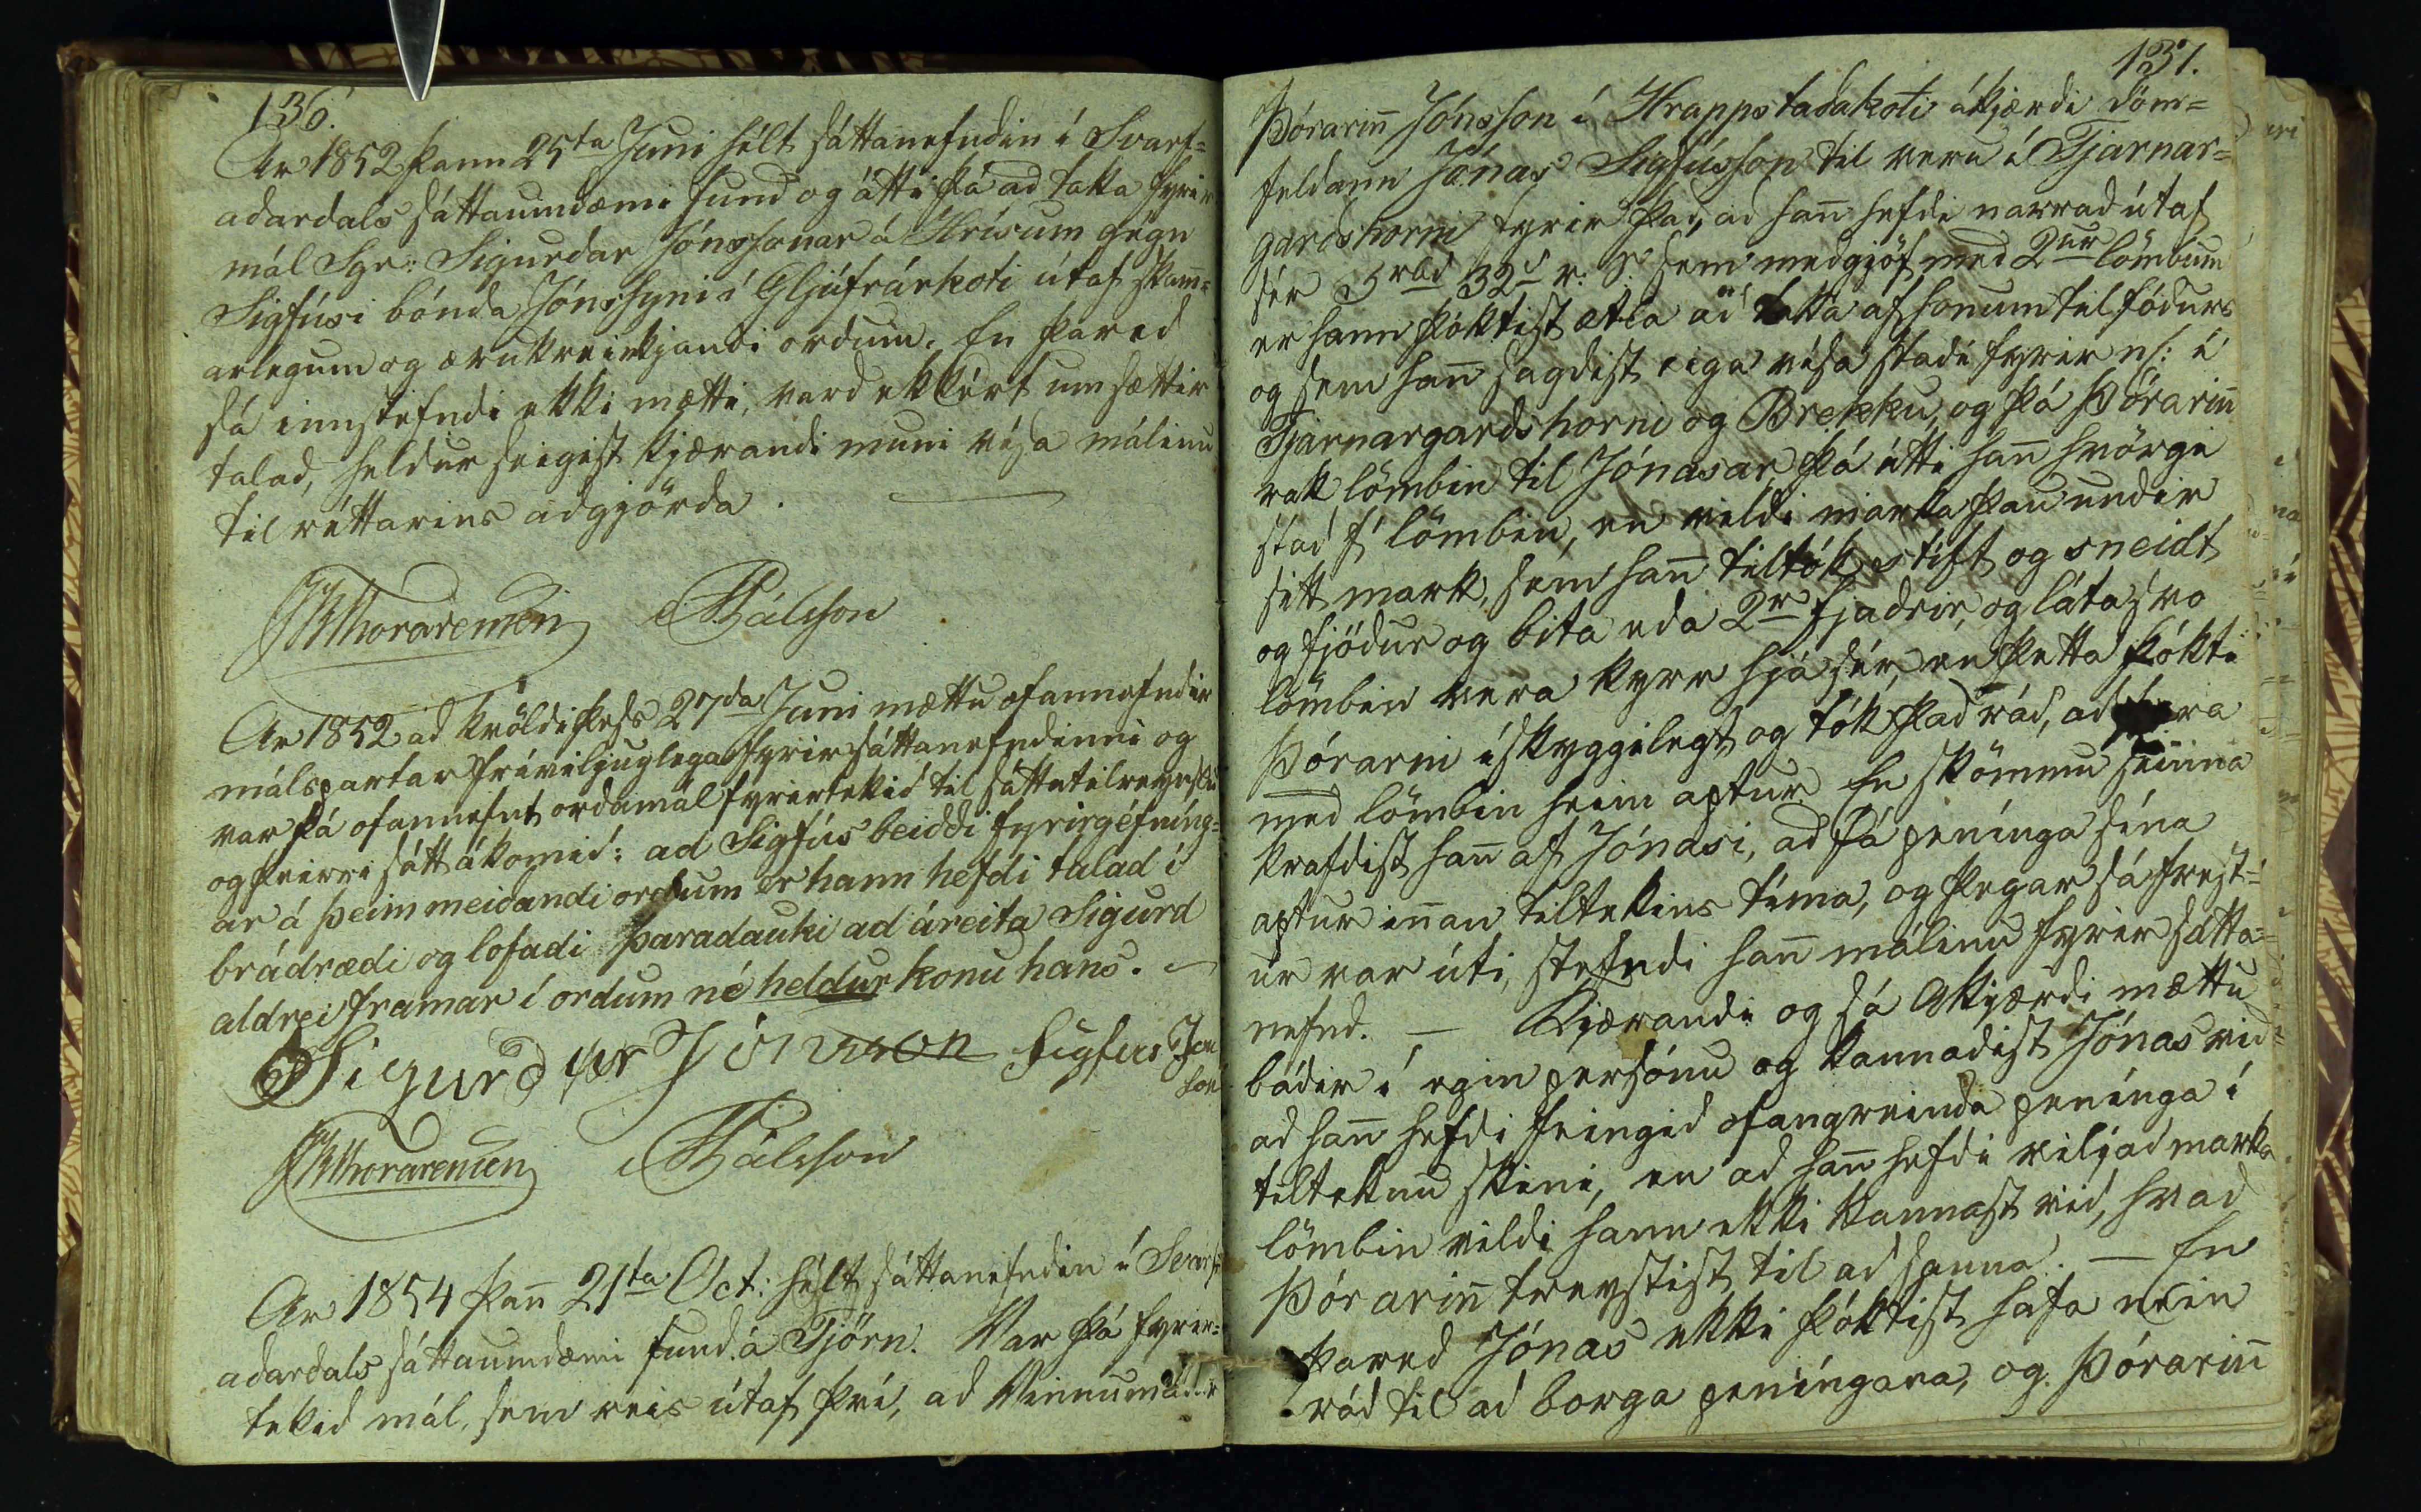 136.
Ar 1852 þann 25ta Juni hélt sáttanefndin í Svarf-
adardals sáttaumdæmi fund og átti þá ad taka fyrir
mál Sgr: Sigurdar Jónssonar á Hrísum gégn
Sigfúsi bónda Jónssyni í Gljúfrárkoti útaf skam̄-
arlegum og ærukreinkjandi ordum. En þared
sá innstefndi ekki mætti, vard ekkért um sættir
talad, heldur seigist kjærandi muni vísa málinu
til réttarins adgjörda.
JKThorarensen Pálsson
Ar 1852 ad kvöldi þess 27da Juni mættu ofannefndir
málspartar fríviljuglega fyrir sáttanefndinni og
var þá ofannefnt ordamál fyrirtekid til sáttatilreynslu
og þeirri sátt ákomid: ad Sigfús beiddi fyrirgéfníng-
ar á þeim meidandi ordum er hann hefdi talad í
brádrædi og lofadi þaradauki ad áreita Sigurd
aldrei framar í ordum né heldur konu hans. —
Sigurdur Jónsson Sigfus Jon
son
JKThorarensen Pálsson
Ar 1854 þan̄ 21ta Oct: hélt sáttanefndin í Svarf-
adardals sáttaumdæmi fund á Tjörn. Var þá fyrir-
tekid mál, sem reis útaf því, ad Vinnumadur
137.
Þórarin̄ Jónsson í Hrappstadakoti ákjærdi dóm-
feldann Jónas Sigfússon til veru í Tjarnar-
gardshorni fyrir þad, ad han̄ hefdi narrad útaf
sér 3rbd 32s r. S. sem medgjöf med 2ur lömbum
er hann þóktist ætla ad taka af honum til fódurs
og sem han̄ sagdist eiga vísa stadi fyrir nl: í
Tjarnargardshorni og Brekku, og þá Þórarin̄
rak lömbin til Jónasar, þá átti han̄ hvörgi
stad f' lömbin, en vildi marka þau undir
sitt mark, sem han̄ tiltók stíft og sneidt
og fjödur og bita eda 2r fjadrir, og láta svo
lömbin vera kyrr hjá sér, en þetta þókti
Þórarni ískyggilegt og tók þad rád, ad fara
med lömbin heim aptur. En skömmu seinna
krafdist han̄ af Jónasi, ad fá peninga sína
aptur in̄an tiltekins tíma, og þegar sá frest-
ur var úti, stefndi han̄ málinu fyrir sátta-
nefnd. — Kjærandi og sá Akjærdi mættu
bádir í egin persónu og kannadist Jónas vid
ad han̄ hefdi feingid ofangreinda peninga í
tiltektnu skini, en ad han̄ hefdi viljad marka
lömbin vildi hann ekki kannast vid, hvad
Þórarin̄ treystist til ad sanna. — En
þared Jónas ekki þóktist hafa nein
rád til ad borga peningana, og Þórarin̄